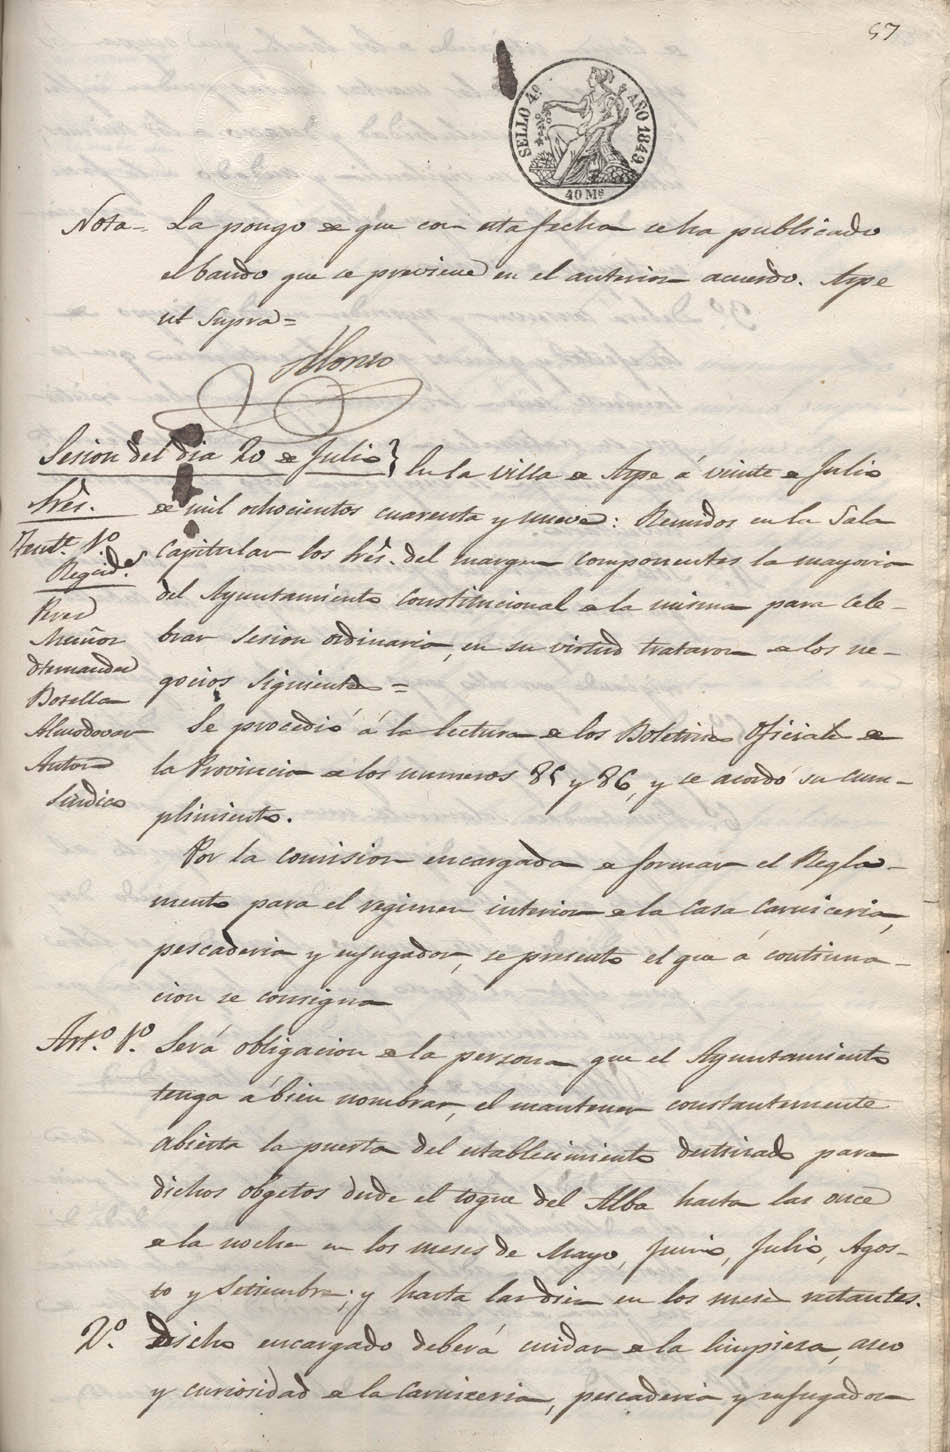 57
SELLO 4º AÑO 1849.
40 Mˢ
Nota= La pongo de que con esta fecha se ha publicado
el bando que se previene en el anterior acuerdo. Aspe
ut supra=
Alonso
Sesion del dia 20 de Julio} En la villa de Aspe á veinte de Julio
Sres. de mil ochocientos cuarenta y nueve: Reunidos en la Sala
Tente. 1º Capitular los Sres. del margen componentes la mayoria
Regides. del Ayuntamiento Constitucional de la misma para cele-
Muñoz brar sesion ordinaria, en su virtud trataron de los ne-
Hernandez gocios siguientes=
Botella
Almodovar Se procedió á la lectura de los Boletines Oficiales de
Autor la Provincia de los numeros 85 y 86, y se acordó su cum-
Sindico plimiento.
Por la comision encargada de formar el Regla-
mento para el regimen interior de la Casa Carniceria,
pescaderia y enjugador, se presentó el que á continua-
cion se consigna
Arto. 1º. Será obligacion de la persona que el Ayuntamiento
tenga á bien nombrar, el mantener constantemente
abierta la puerta del establecimiento destinado para
dichos obgetos desde el toque del Alba hasta las once
de la noche en los meses de Mayo, Junio, Julio, Agos-
to y Setiembre; y hasta las diez en los meses restantes.
2º. Dicho encargado deberá cuidar de la limpieza, aseo
y curiosidad de la Carniceria, pescaderia y enjugador